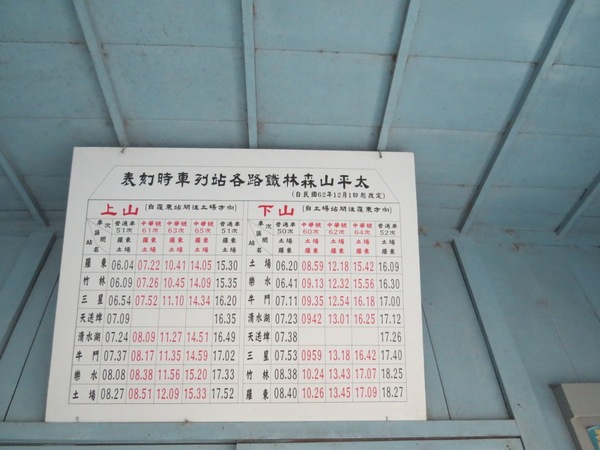 表刻時車列站各路鐵林森山平太
(自民國62年12月1日起改定)
上山 (自羅東站開往土場方向)
車次 普通車51次 中華號61次 中華號63次 中華號65次 普通車51次
站名 區間 羅東 土場 羅東 土場 羅東 土場 羅東 土場 羅東 土場
羅東 06.04 07.22 10.41 14.05 15.30
竹林 06.09 07.26 10.45 14.09 15.35
三星 06.54 07.52 11.10 14.34 16.20
天送埤 07.09 16.35
清水湖 07.24 08.09 11.27 14.51 16.49
牛鬥 07.37 08.17 11.35 14.59 17.02
樂水 08.08 08.38 11.56 15.20 17.33
土場 08.27 08.51 12.09 15.33 17.52
下山 (自土場站開往羅東方向)
車次 普通車50次 中華號60次 中華號62次 中華號64次 普通車52次
站名 區間 土場 羅東 土場 羅東 土場 羅東 土場 羅東 土場 羅東
土場 06.20 08.59 12.18 15.42 16.09
樂水 06.41 09.13 12.32 15.56 16.30
牛鬥 07.11 09.35 12.54 16.18 17.00
清水湖 07.23 0942 13.01 16.25 17.12
天送埤 07.38 17.26
三星 07.53 0959 13.18 16.42 17.40
竹林 08.38 10.24 13.43 17.07 18.25
羅東 08.40 10.26 13.45 17.09 18.27